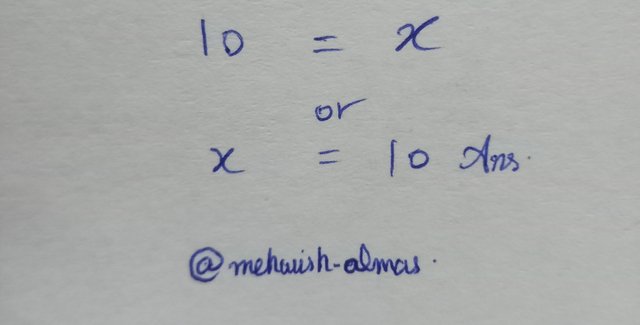 10 = x
or
x = 10 Ans.
@mehwish-almas.